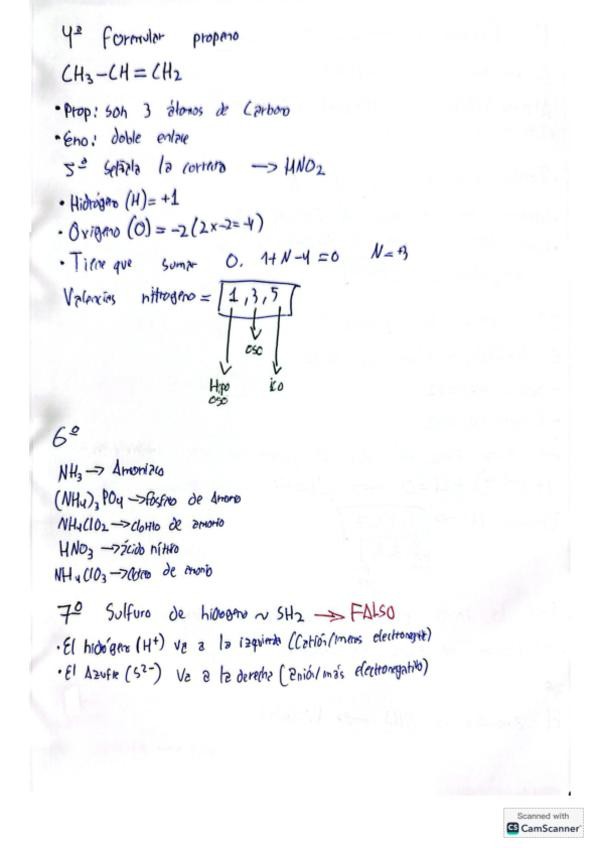 4ª Formular propeno
CH3-CH=CH2
• Prop: son 3 átomos de Carbono
• Eno: doble enlace
5ª Señala la correcta → HNO2
• Hidrógeno (H) = +1
• Oxígeno (O) = -2 (2x-2=-4)
• Tiene que sumar 0. 1+N-4=0 N=+3
Valencias nitrogeno = 1, 3, 5
oso
Hipo ico
oso
6º
NH3 → Amoniaco
(NH4)3 PO4 → Fosfato de Amonio
NH4ClO2 → clorito de amonio
HNO3 → ácido nítrico
NH4ClO3 → Clorato de amonio
7º Sulfuro de hidrogeno ~ SH2 → FALSO
• El hidrógeno (H+) va a la izquierda (Catión/menos electronegat)
• El Azufre (S2-) va a la derecha (anión/más electronegativo)
Scanned with
CS CamScanner